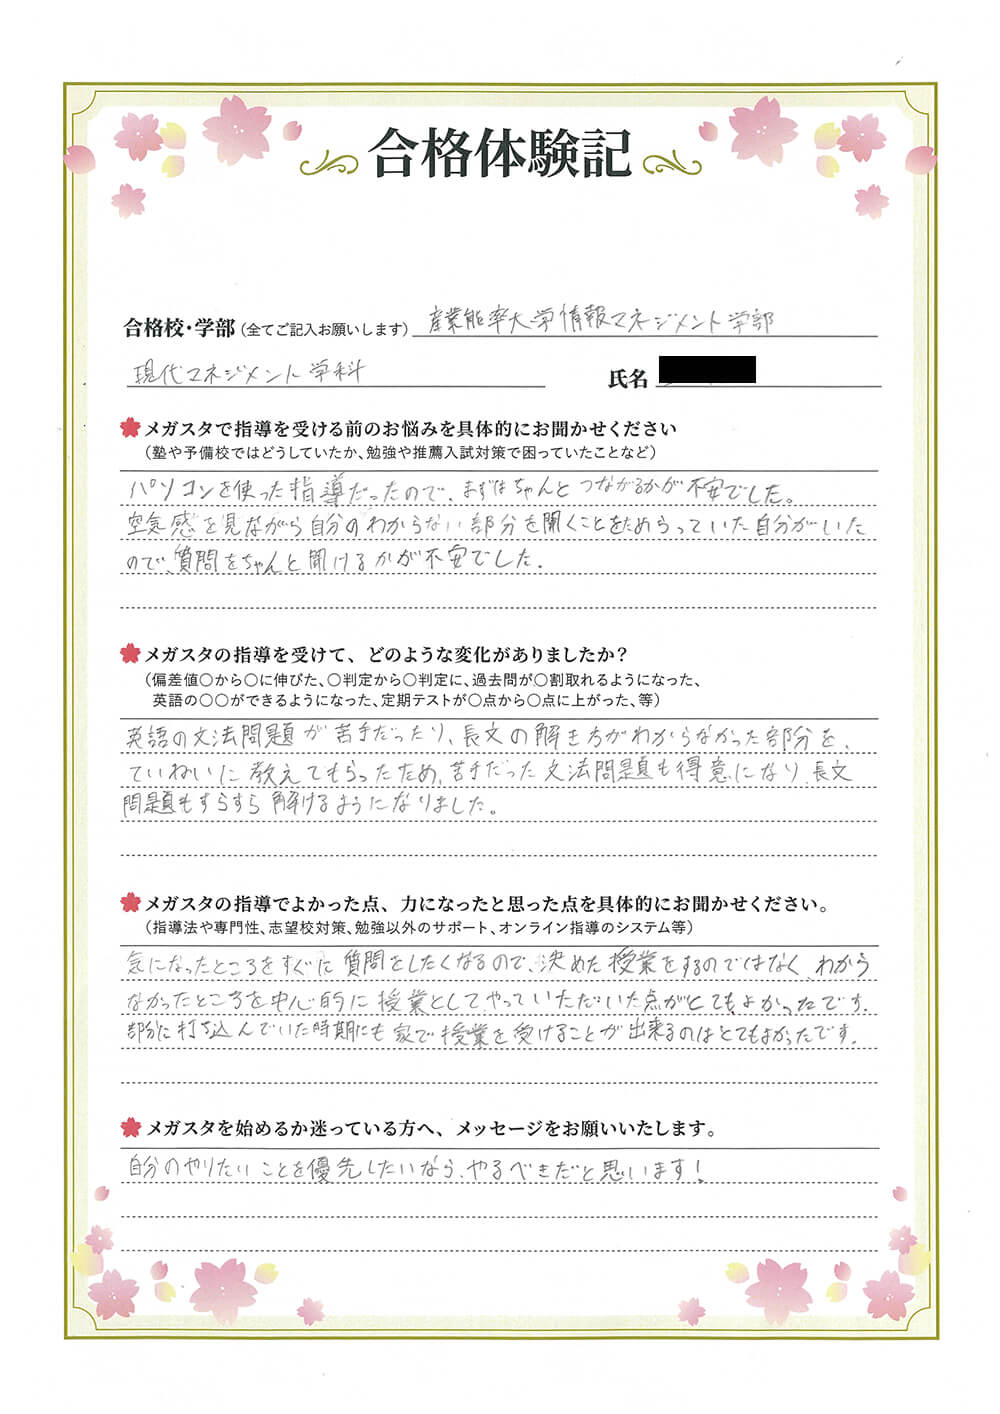 合格体験記
合格校・学部（全てご記入お願いします） 産業能率大学情報マネジメント学部
現代マネジメント学科 氏名
メガスタで指導を受ける前のお悩みを具体的にお聞かせください
（塾や予備校ではどうしていたか、勉強や推薦入試対策で困っていたことなど）
パソコンを使った指導だったので、まずはちゃんとつながるかが不安でした。
空気感を見ながら自分のわからない部分を聞くことをためらっていた自分がいた
ので、質問をちゃんと聞けるかが不安でした.
メガスタの指導を受けて、どのような変化がありましたか？
（偏差値〇から〇に伸びた、〇判定から〇判定に、過去問が〇割取れるようになった、
英語の〇〇ができるようになった、定期テストが〇点から〇点に上がった、等）
英語の文法問題が苦手だったり、長文の解き方がわからなかった部分を、
ていねいに教えてもらったため、苦手だった文法問題も得意になり、長文
問題もすらすら解けるようになりました。
メガスタの指導でよかった点、力になったと思った点を具体的にお聞かせください。
（指導法や専門性、志望校対策、勉強以外のサポート、オンライン指導のシステム等）
気になったところをすぐに質問をしたくなるので、決めた授業をするのではなく、わから
なかったところを中心的に授業としてやっていただいた点がとてもよかったです.
部活に打ち込んでいた時期にも家で授業を受けることが出来るのはとてもよかったです.
メガスタを始めるか迷っている方へ、メッセージをお願いいたします。
自分のやりたいことを優先したいなら、やるべきだと思います!